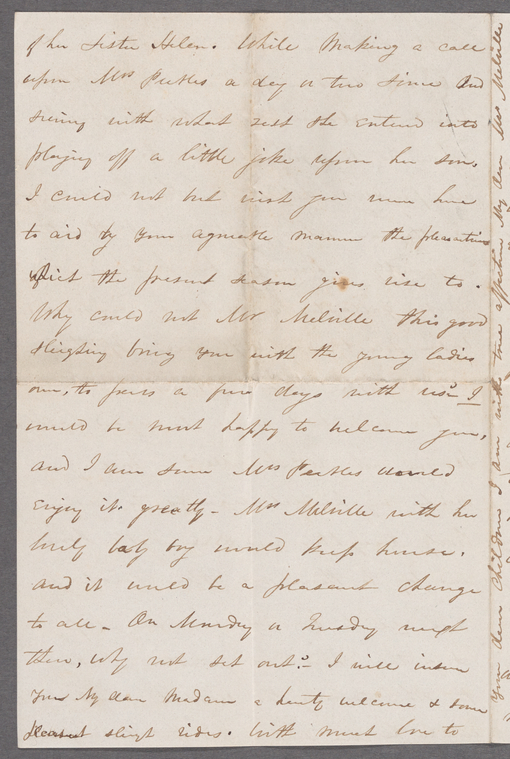 of her Sister Helen. While making a call
upon Mrs Peebles a day or two since and
seeing with what zest she entered into
playing off a little joke upon her son,
I could not but wish you were here
to aid by your agreeable manner the pleasantries
which the present season gives rise to.
Why could not Mr Melville this good
sleighing bring you with the young ladies
over, to pass a few days with us? I
would be most happy to welcome you,
and I am sure Mrs Peebles would
enjoy it greatly - Mrs Melville with her
lovely baby boy would keep house,
and it would be a pleasant change
to all - On Monday or Tuesday next
then, why not set out? - I will insure
you My dear Madam a hearty welcome & some
pleasant sleigh rides. With much love to
your dear Children I am with true affection My dear Mrs Melville